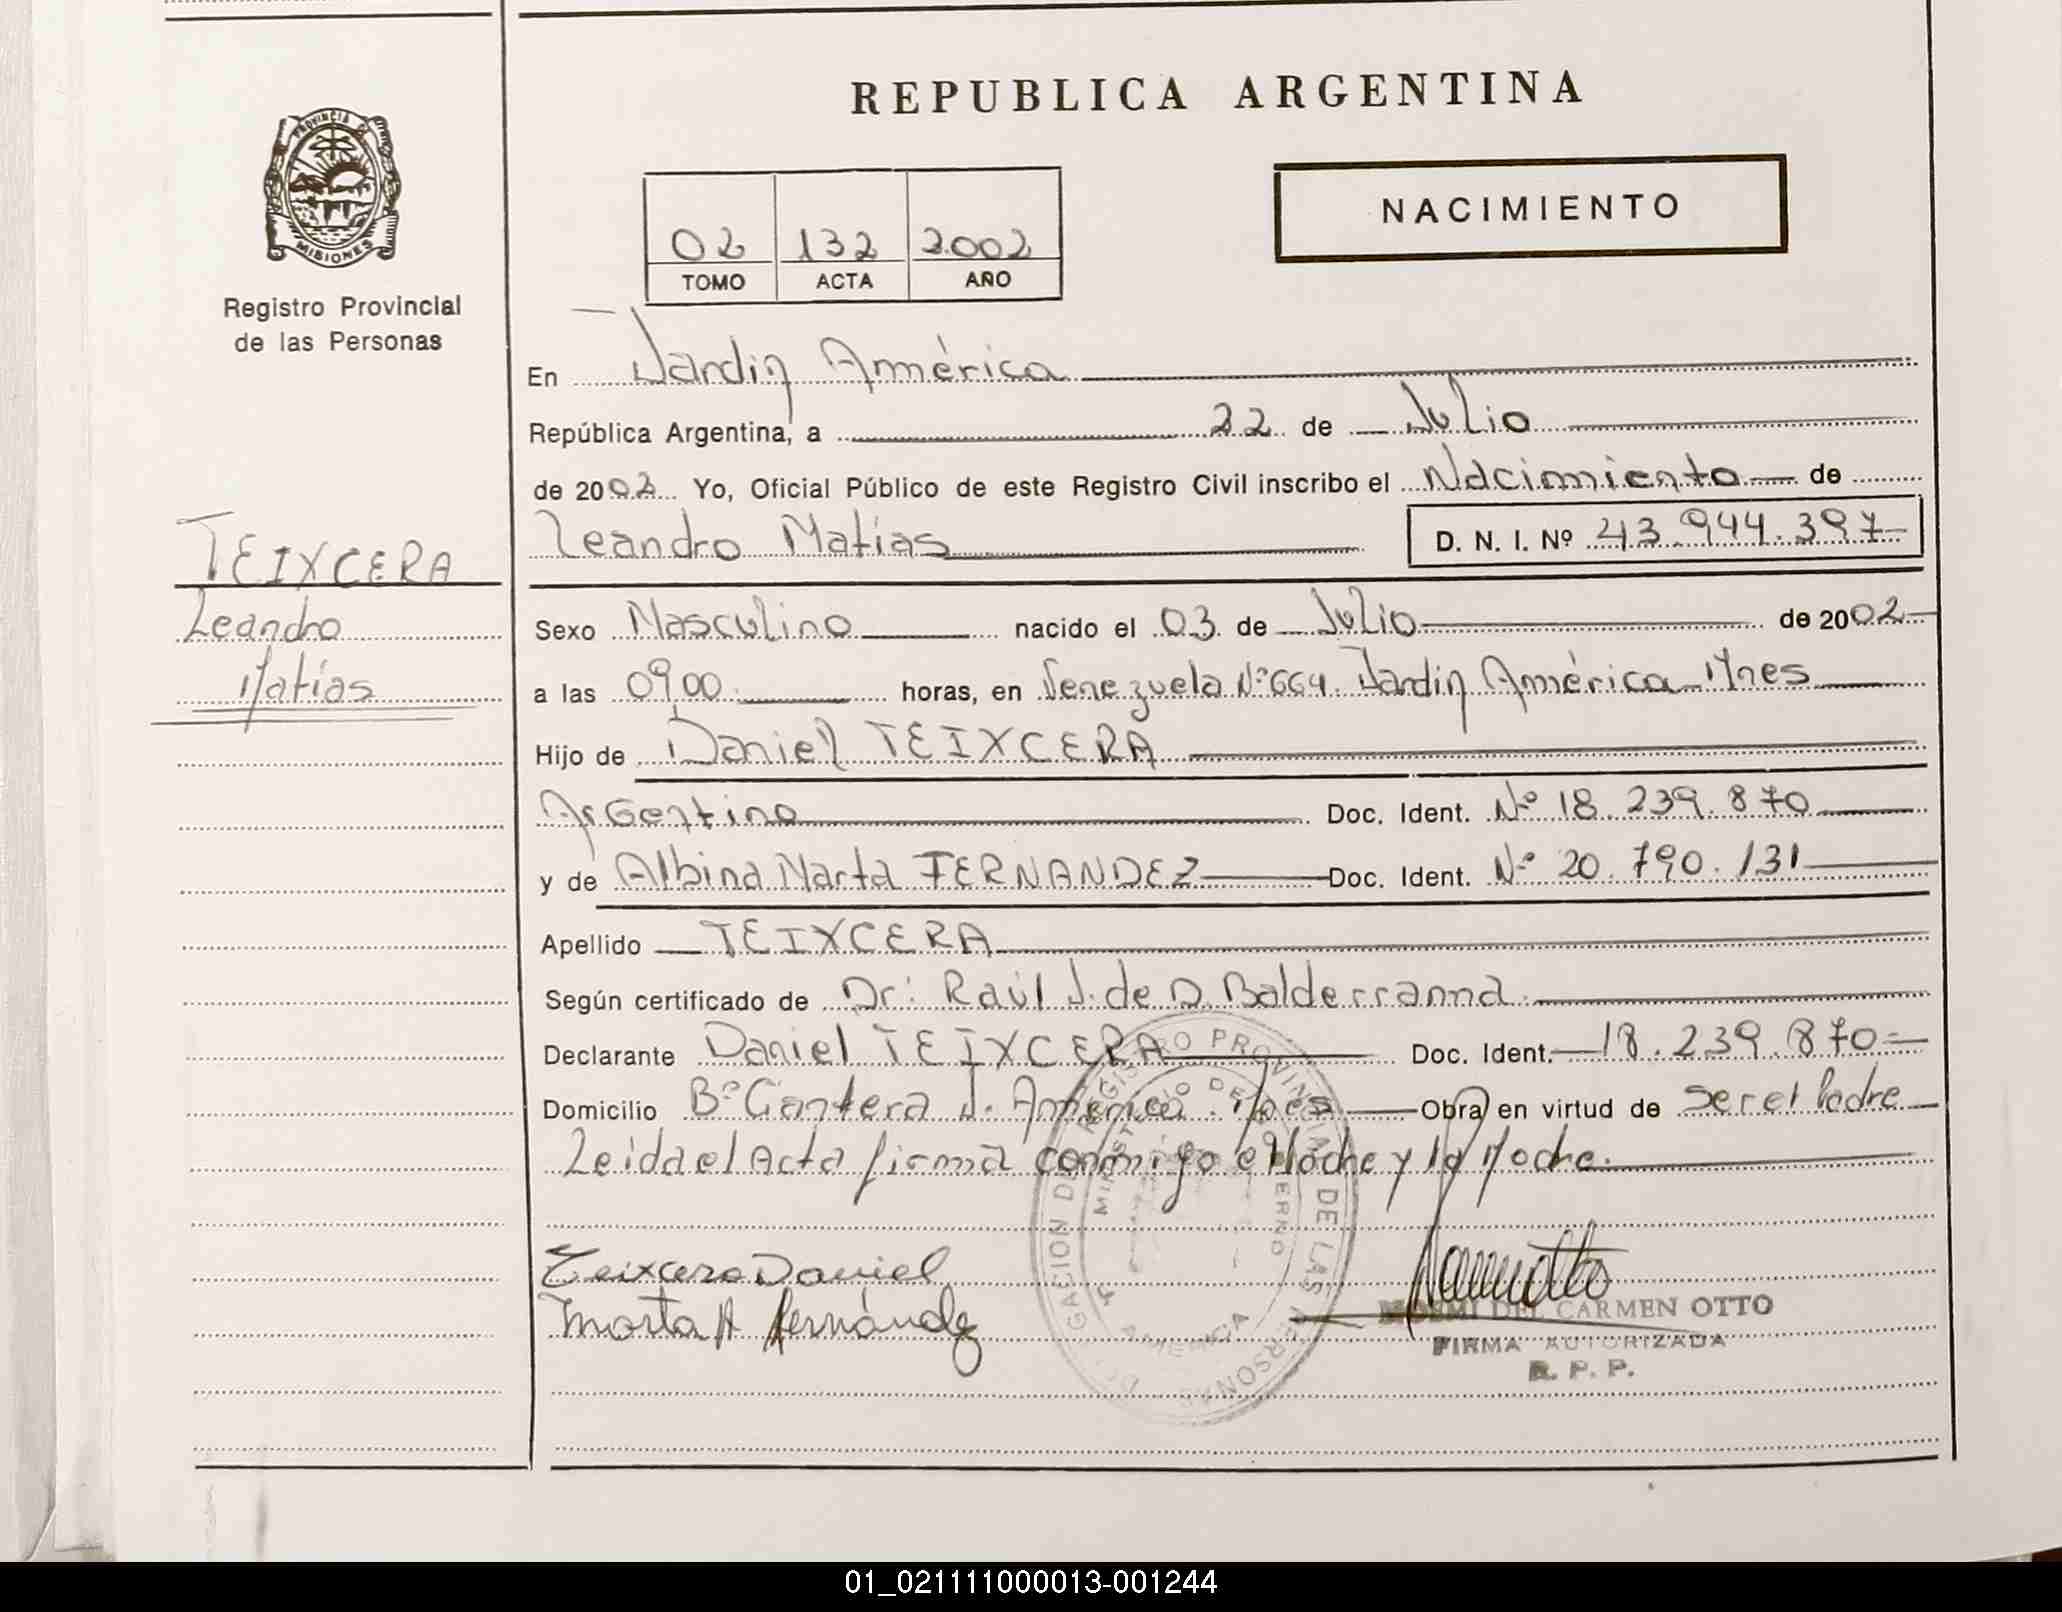 REPUBLICA ARGENTINA
PROVINCIA DE
MISIONES
Registro Provincial
de las Personas
NACIMIENTO
02 132 2.002
TOMO ACTA AÑO
En Jardin América
República Argentina, a 22 de Julio
de 2002 Yo, Oficial Público de este Registro Civil inscribo el Nacimiento de
Leandro Matías D. N. I. Nº 43.944.397
TEIXCERA
Leandro
Matías
Sexo Masculino nacido el 03 de Julio de 2002
a las 09,00 horas, en Venezuela Nº 664. Jardin América Mnes
Hijo de Daniel TEIXCERA
Argentino Doc. Ident. Nº 18.239.870
y de Albina Marta FERNANDEZ Doc. Ident. Nº 20.790.131
Apellido TEIXCERA
Según certificado de Dr: Raúl J. de D. Balderrama.
Declarante Daniel TEIXCERA Doc. Ident. 18.239.870=
Domicilio Bº Cantera J. América. Mnes Obra en virtud de ser el Padre
Leida el Acta firma conmigo el Padre y la Madre.
DELEGACION DEL REGISTRO PROVINCIAL DE LAS PERSONAS
MINISTERIO DE GOBIERNO
AMERICA
Teixcera Daniel
Marta A Fernández
NOEMI DEL CARMEN OTTO
FIRMA AUTORIZADA
R. P. P.
01_021111000013-001244